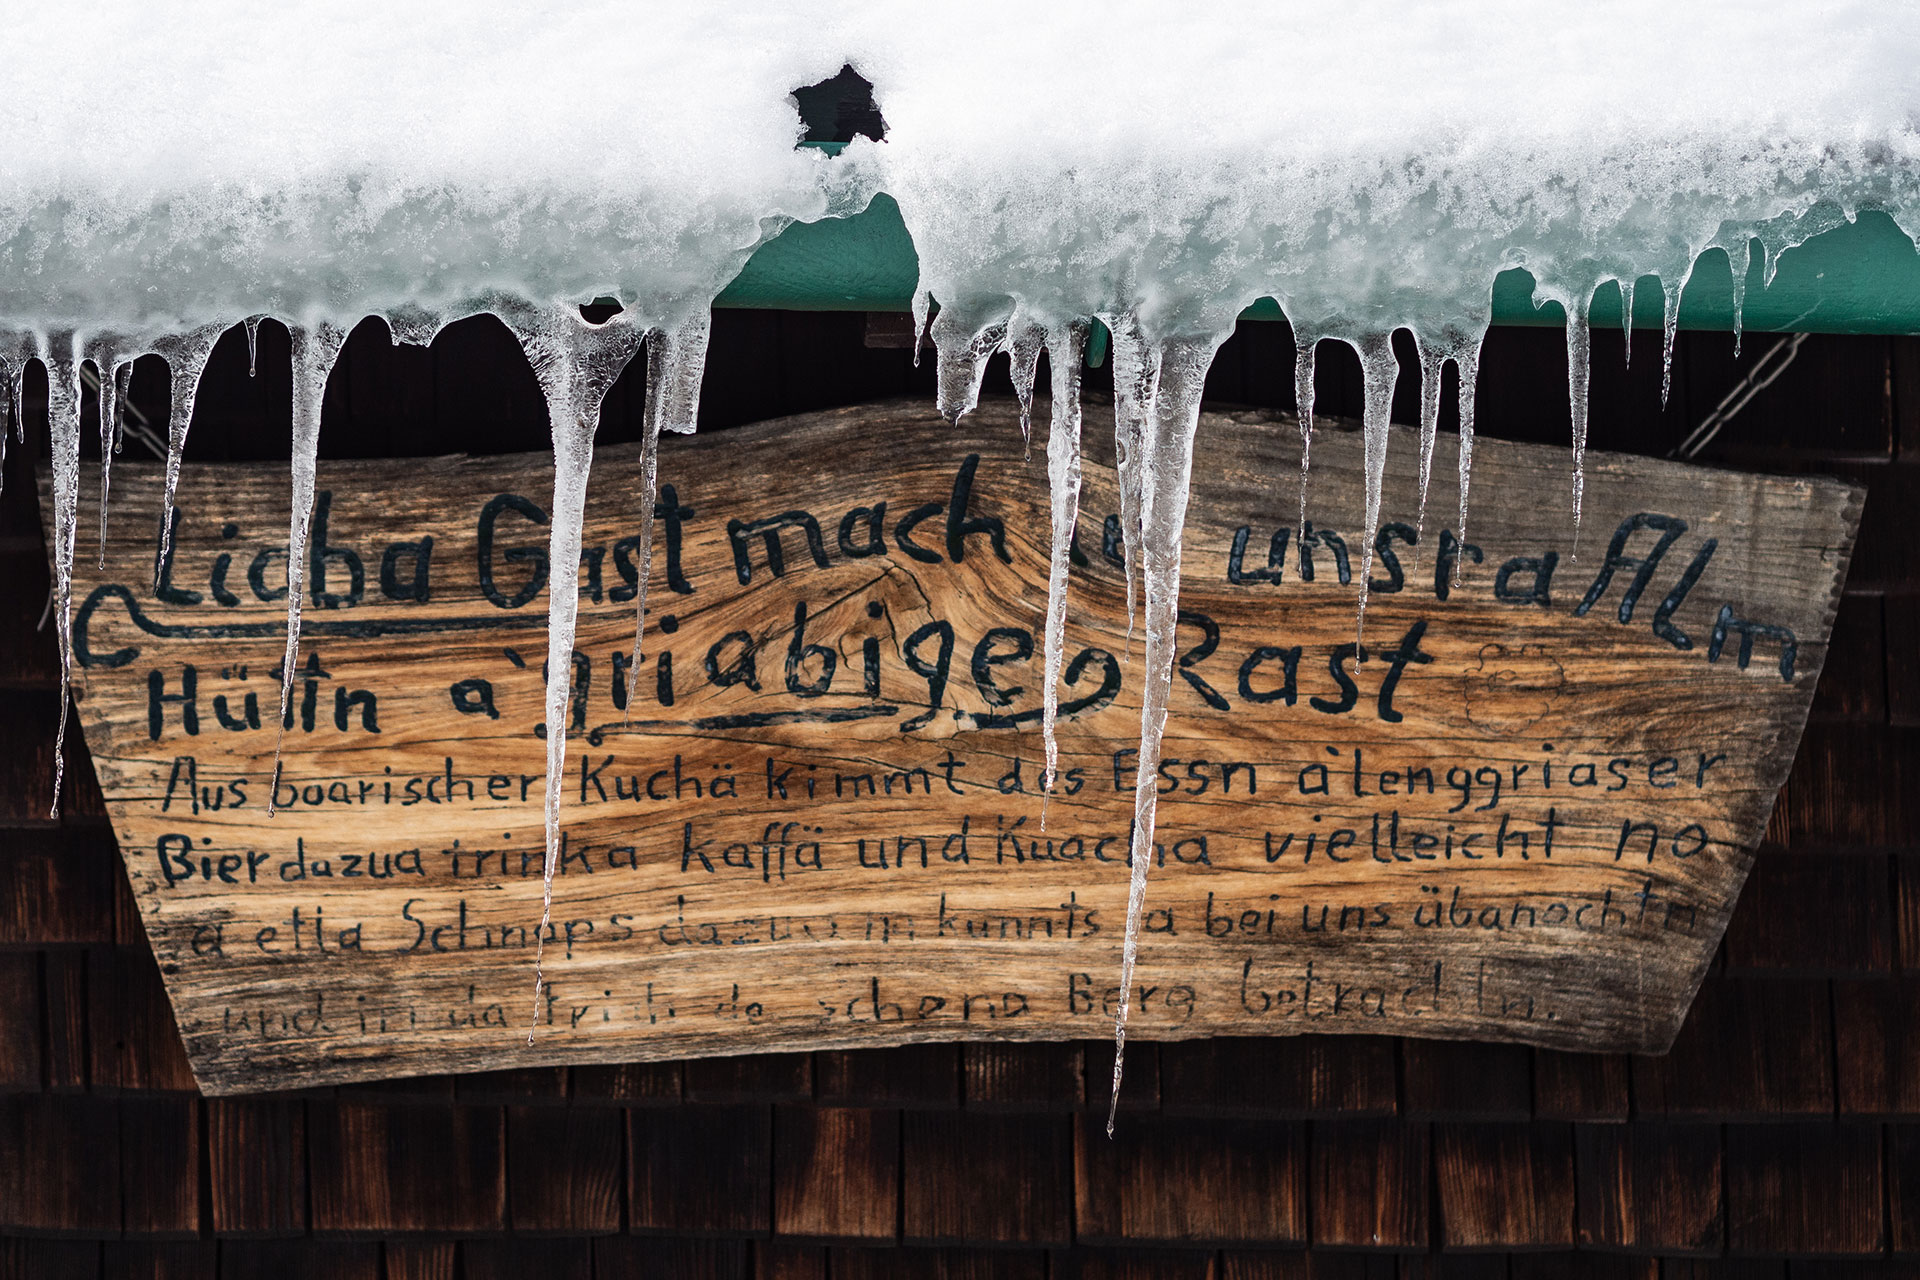 Liaba Gast mach in unsra Alm
Hüttn a griabige Rast
Aus boarischer Kuchä kimmt des Essn a lenggriaser
Bier dazua trinka kaffä und Kuacha vielleicht no
a etla Schnaps dazua kunnts a bei uns übanochtn
und in da Friah de schena Berg betrachtn.